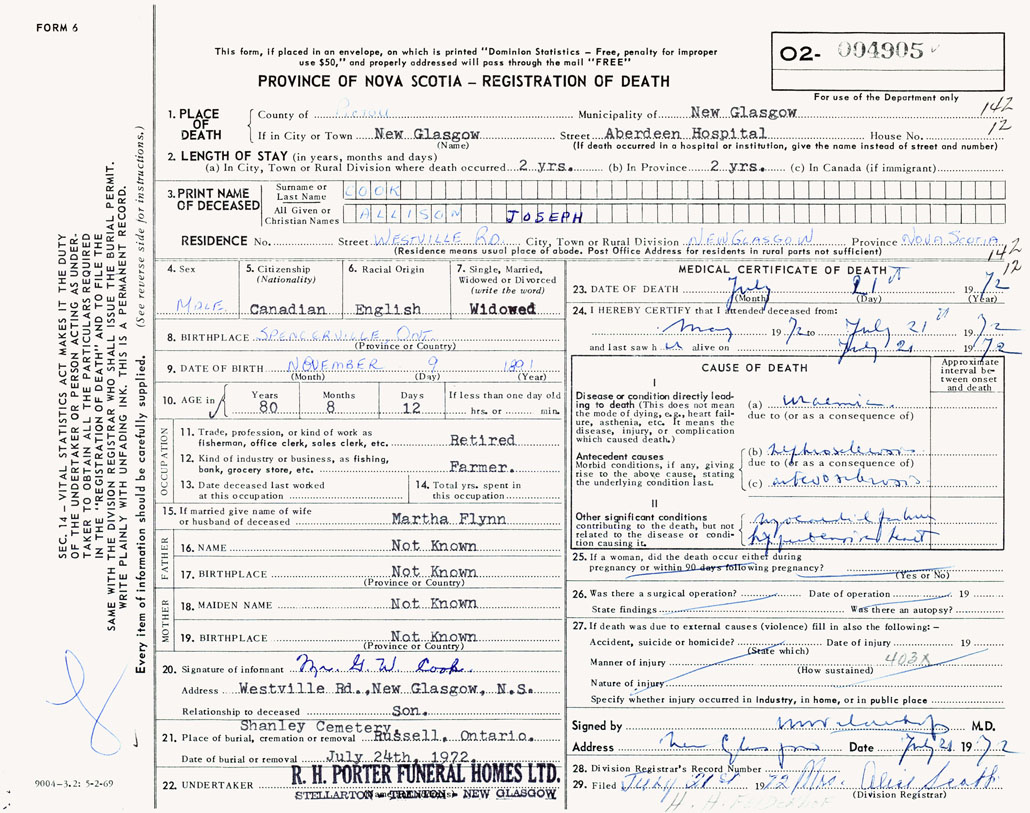 FORM 6
This form, if placed in an envelope, on which is printed "Dominion Statistics – Free, penalty for improper
use $50," and properly addressed will pass through the mail "FREE"
PROVINCE OF NOVA SCOTIA – REGISTRATION OF DEATH
O2- 004905
For use of the Department only
142
12
1. PLACE OF DEATH
County of Pictou Municipality of New Glasgow
If in City or Town New Glasgow Street Aberdeen Hospital House No.
(Name) (If death occurred in a hospital or institution, give the name instead of street and number)
2. LENGTH OF STAY (in years, months and days)
(a) In City, Town or Rural Division where death occurred 2 yrs. (b) In Province 2 yrs. (c) In Canada (if immigrant)
3. PRINT NAME OF DECEASED
Surname or Last Name COOK
All Given or Christian Names ALLISON JOSEPH
RESIDENCE No. Street WESTVILLE RD. City, Town or Rural Division NEW GLASGOW Province NOVA SCOTIA
(Residence means usual place of abode. Post Office Address for residents in rural parts not sufficient)
142
12
4. Sex MALE
5. Citizenship (Nationality) Canadian
6. Racial Origin English
7. Single, Married, Widowed or Divorced (write the word) Widowed
8. BIRTHPLACE SPENCERVILLE, ONT.
(Province or Country)
9. DATE OF BIRTH NOVEMBER 9 1891
(Month) (Day) (Year)
10. AGE in Years 80 Months 8 Days 12 If less than one day old hrs. or min.
OCCUPATION
11. Trade, profession, or kind of work as fisherman, office clerk, sales clerk, etc. Retired
12. Kind of industry or business, as fishing, bank, grocery store, etc. Farmer.
13. Date deceased last worked at this occupation
14. Total yrs. spent in this occupation
15. If married give name of wife or husband of deceased Martha Flynn
FATHER
16. NAME Not Known
17. BIRTHPLACE Not Known
(Province or Country)
MOTHER
18. MAIDEN NAME Not Known
19. BIRTHPLACE Not Known
(Province or Country)
20. Signature of informant Mr. G. W. Cook
Address Westville Rd., New Glasgow, N.S.
Relationship to deceased Son.
21. Place of burial, cremation or removal Shanley Cemetery, Russell, Ontario.
Date of burial or removal July 24th, 1972.
22. UNDERTAKER R. H. PORTER FUNERAL HOMES LTD.
STELLARTON – TRENTON – NEW GLASGOW
MEDICAL CERTIFICATE OF DEATH
23. DATE OF DEATH July 21st 1972
(Month) (Day) (Year)
24. I HEREBY CERTIFY that I attended deceased from:
May 1972 to July 21st 1972
and last saw h im alive on July 21 1972
CAUSE OF DEATH
Approximate interval between onset and death
I
Disease or condition directly leading to death (This does not mean the mode of dying, e.g., heart failure, asthenia, etc. It means the disease, injury, or complication which caused death.)
(a) uraemia
due to (or as a consequence of)
Antecedent causes
Morbid conditions, if any, giving rise to the above cause, stating the underlying condition last.
(b) nephrosclerosis
due to (or as a consequence of)
(c) arteriosclerosis
II
Other significant conditions contributing to the death, but not related to the disease or condition causing it.
myocardial failure
hypertensive heart
25. If a woman, did the death occur either during
pregnancy or within 90 days following pregnancy?
(Yes or No)
26. Was there a surgical operation? Date of operation 19
State findings Was there an autopsy?
27. If death was due to external causes (violence) fill in also the following: –
Accident, suicide or homicide? Date of injury 19
(State which)
Manner of injury 403X
(How sustained)
Nature of injury
Specify whether injury occurred in Industry, in home, or in public place
Signed by M.D.
Address New Glasgow Date July 21 1972
28. Division Registrar's Record Number
29. Filed July 21st 1972 Mrs. Alice
(Division Registrar)
SEC. 14 – VITAL STATISTICS ACT MAKES IT THE DUTY
OF THE UNDERTAKER OR PERSON ACTING AS UNDER-
TAKER TO OBTAIN ALL THE PARTICULARS REQUIRED
IN THE "REGISTRATION OF DEATH" AND TO FILE THE
SAME WITH THE DIVISION REGISTRAR WHO SHALL ISSUE THE BURIAL PERMIT.
WRITE PLAINLY WITH UNFADING INK. THIS IS A PERMANENT RECORD.
Every item of information should be carefully supplied. (See reverse side for instructions.)
9004-3.2: 5-2-69